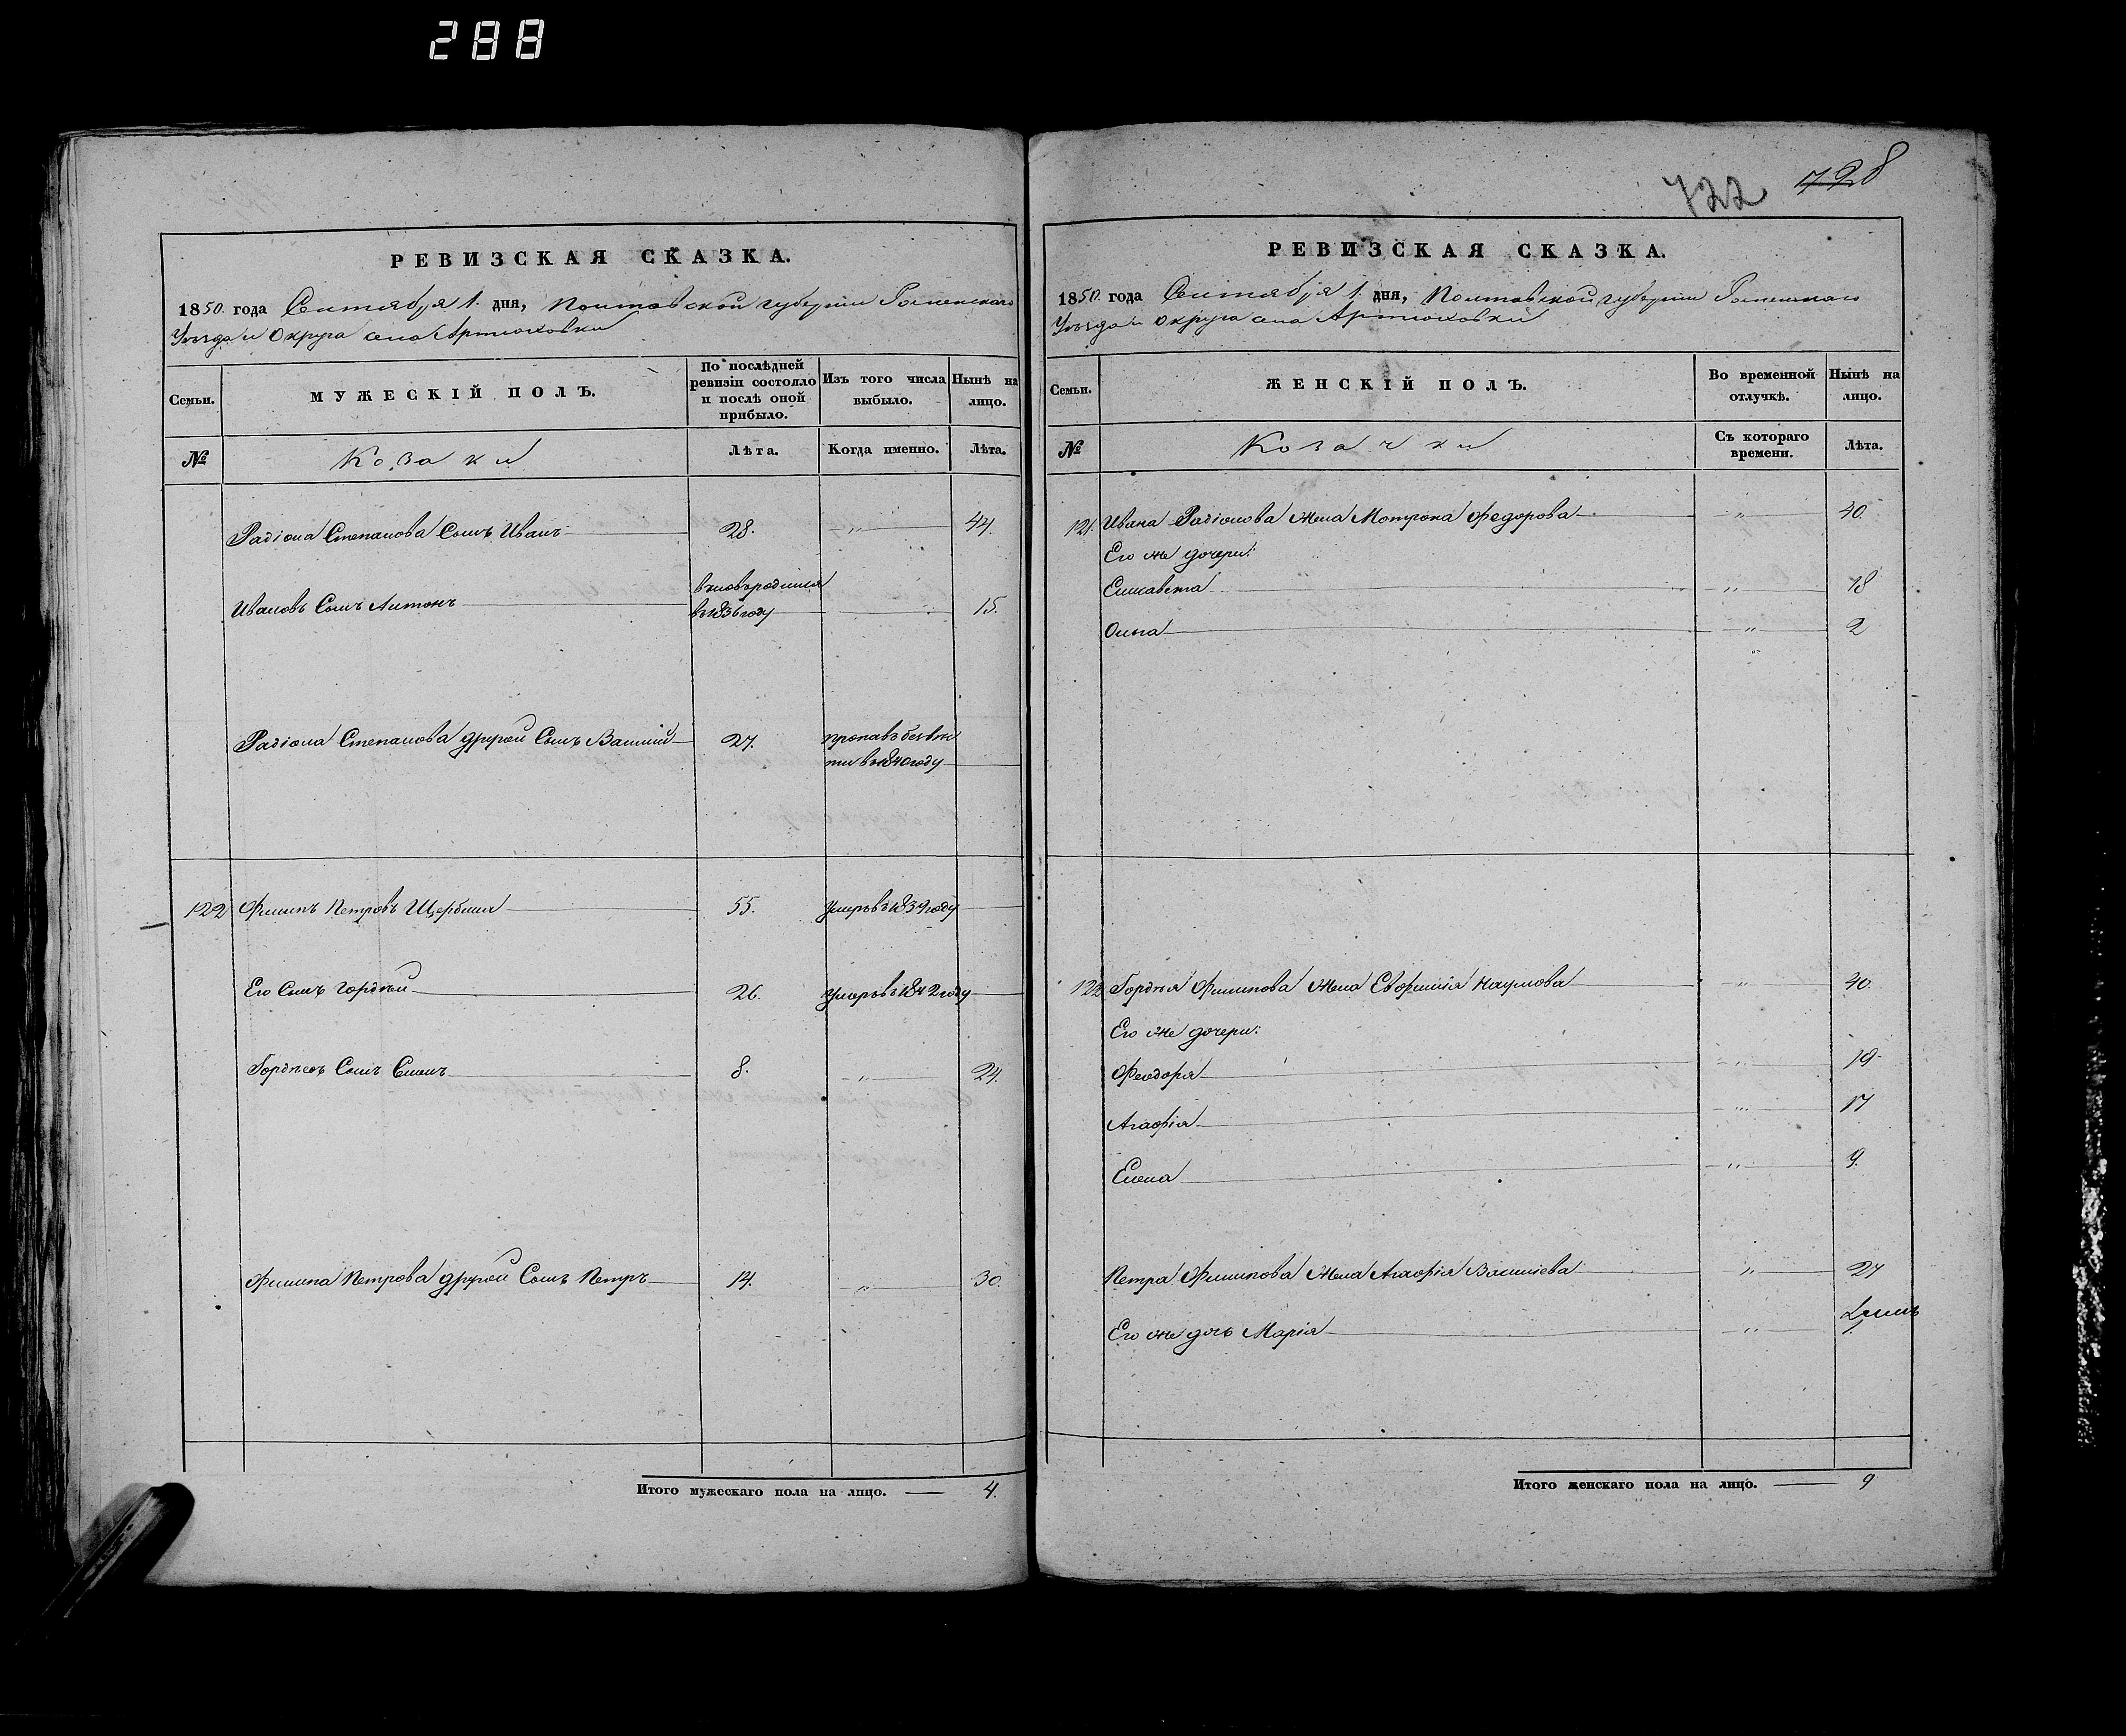 288
РЕВИЗСКАЯ СКАЗКА.
1850. года Сентября 1. дня, Полтавской губернии Роменскаго
Уѣзда и Округа села Артюховки
Семьи.
МУЖЕСКІЙ ПОЛЪ.
По послѣдней ревизіи состояло и послѣ оной прибыло.
Изъ того числа выбыло.
Нынѣ на лицо.
№
Козаки
Лѣта.
Когда именно.
Лѣта.
Радіона Степанова Сынъ Иванъ 28. „ 44.
Ивановъ Сынъ Антонъ вновьродился
въ 1836 году 15.
Радіона Степанова другой Сынъ Василій 27. пропавъ безвѣс
ти въ 1840 году
122 Филипъ Петровъ Щербина 55. Умеръ въ 1839 году
Его Сынъ Гордѣй 26. Умеръ въ 1842 году
Гордѣевъ Сынъ 8. „ 24.
Филипа Петрова другой Сынъ Петръ 14. „ 30.
Итого мужескаго пола на лицо. 4.
722 728
РЕВИЗСКАЯ СКАЗКА.
1850. года Сентября 1. дня, Полтавской губернии Роменскаго
Уѣзда и Округа села Артюховки
Семьи.
ЖЕНСКІЙ ПОЛЪ.
Во временной отлучкѣ.
Нынѣ на лицо.
№
Козачки
Съ котораго времени.
Лѣта.
121. Ивана Радіонова жена Мотрона Федорова „ 40.
Его же дочери:
Елисавета „ 18
Ольга „ 2
122 Гордѣя Филипова жена Евфимія Наумова „ 40.
Его же дочери:
Феодора „ 19
Агафія „ 17
Елена „ 9.
Петра Филипова жена Агафія Василіева „ 27
Его же дочь Марія „
Итого женскаго пола на лицо. 9